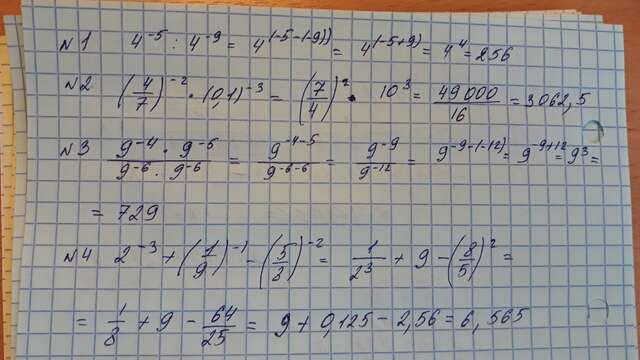 №1 4^-5 : 4^-9 = 4^(-5-(-9)) = 4^(-5+9) = 4^4 = 256
№2 (4/7)^-2 · (0,1)^-3 = (7/4)^2 · 10^3 = 49000/16 = 3062,5
№3 (9^-4 · 9^-5)/(9^-6 · 9^-6) = 9^(-4-5)/9^(-6-6) = 9^-9/9^-12 = 9^(-9-(-12)) = 9^(-9+12) = 9^3 =
= 729
№4 2^-3 + (1/9)^-1 - (5/8)^-2 = 1/2^3 + 9 - (8/5)^2 =
= 1/8 + 9 - 64/25 = 9 + 0,125 - 2,56 = 6,565